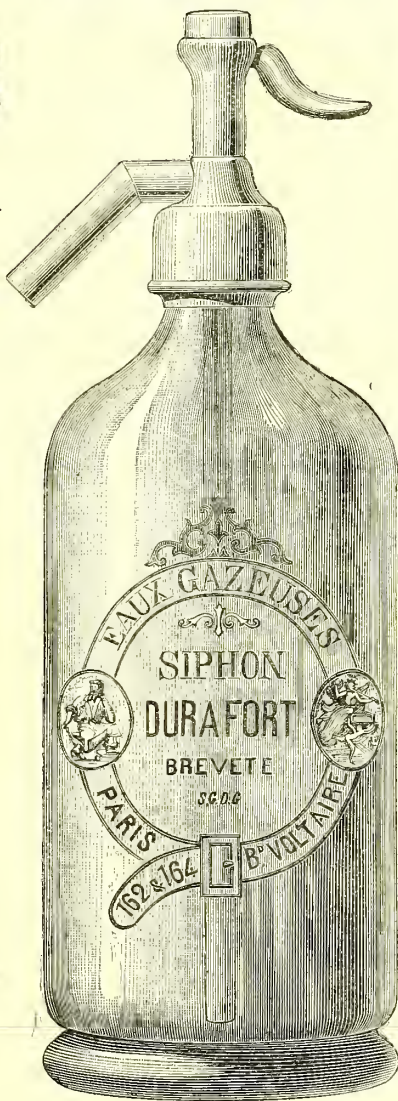 EAUX GAZEUSES
SIPHON
DURAFORT
BREVETE
S.G.D.G
PARIS
162 & 164
Bᴰ VOLTAIRE